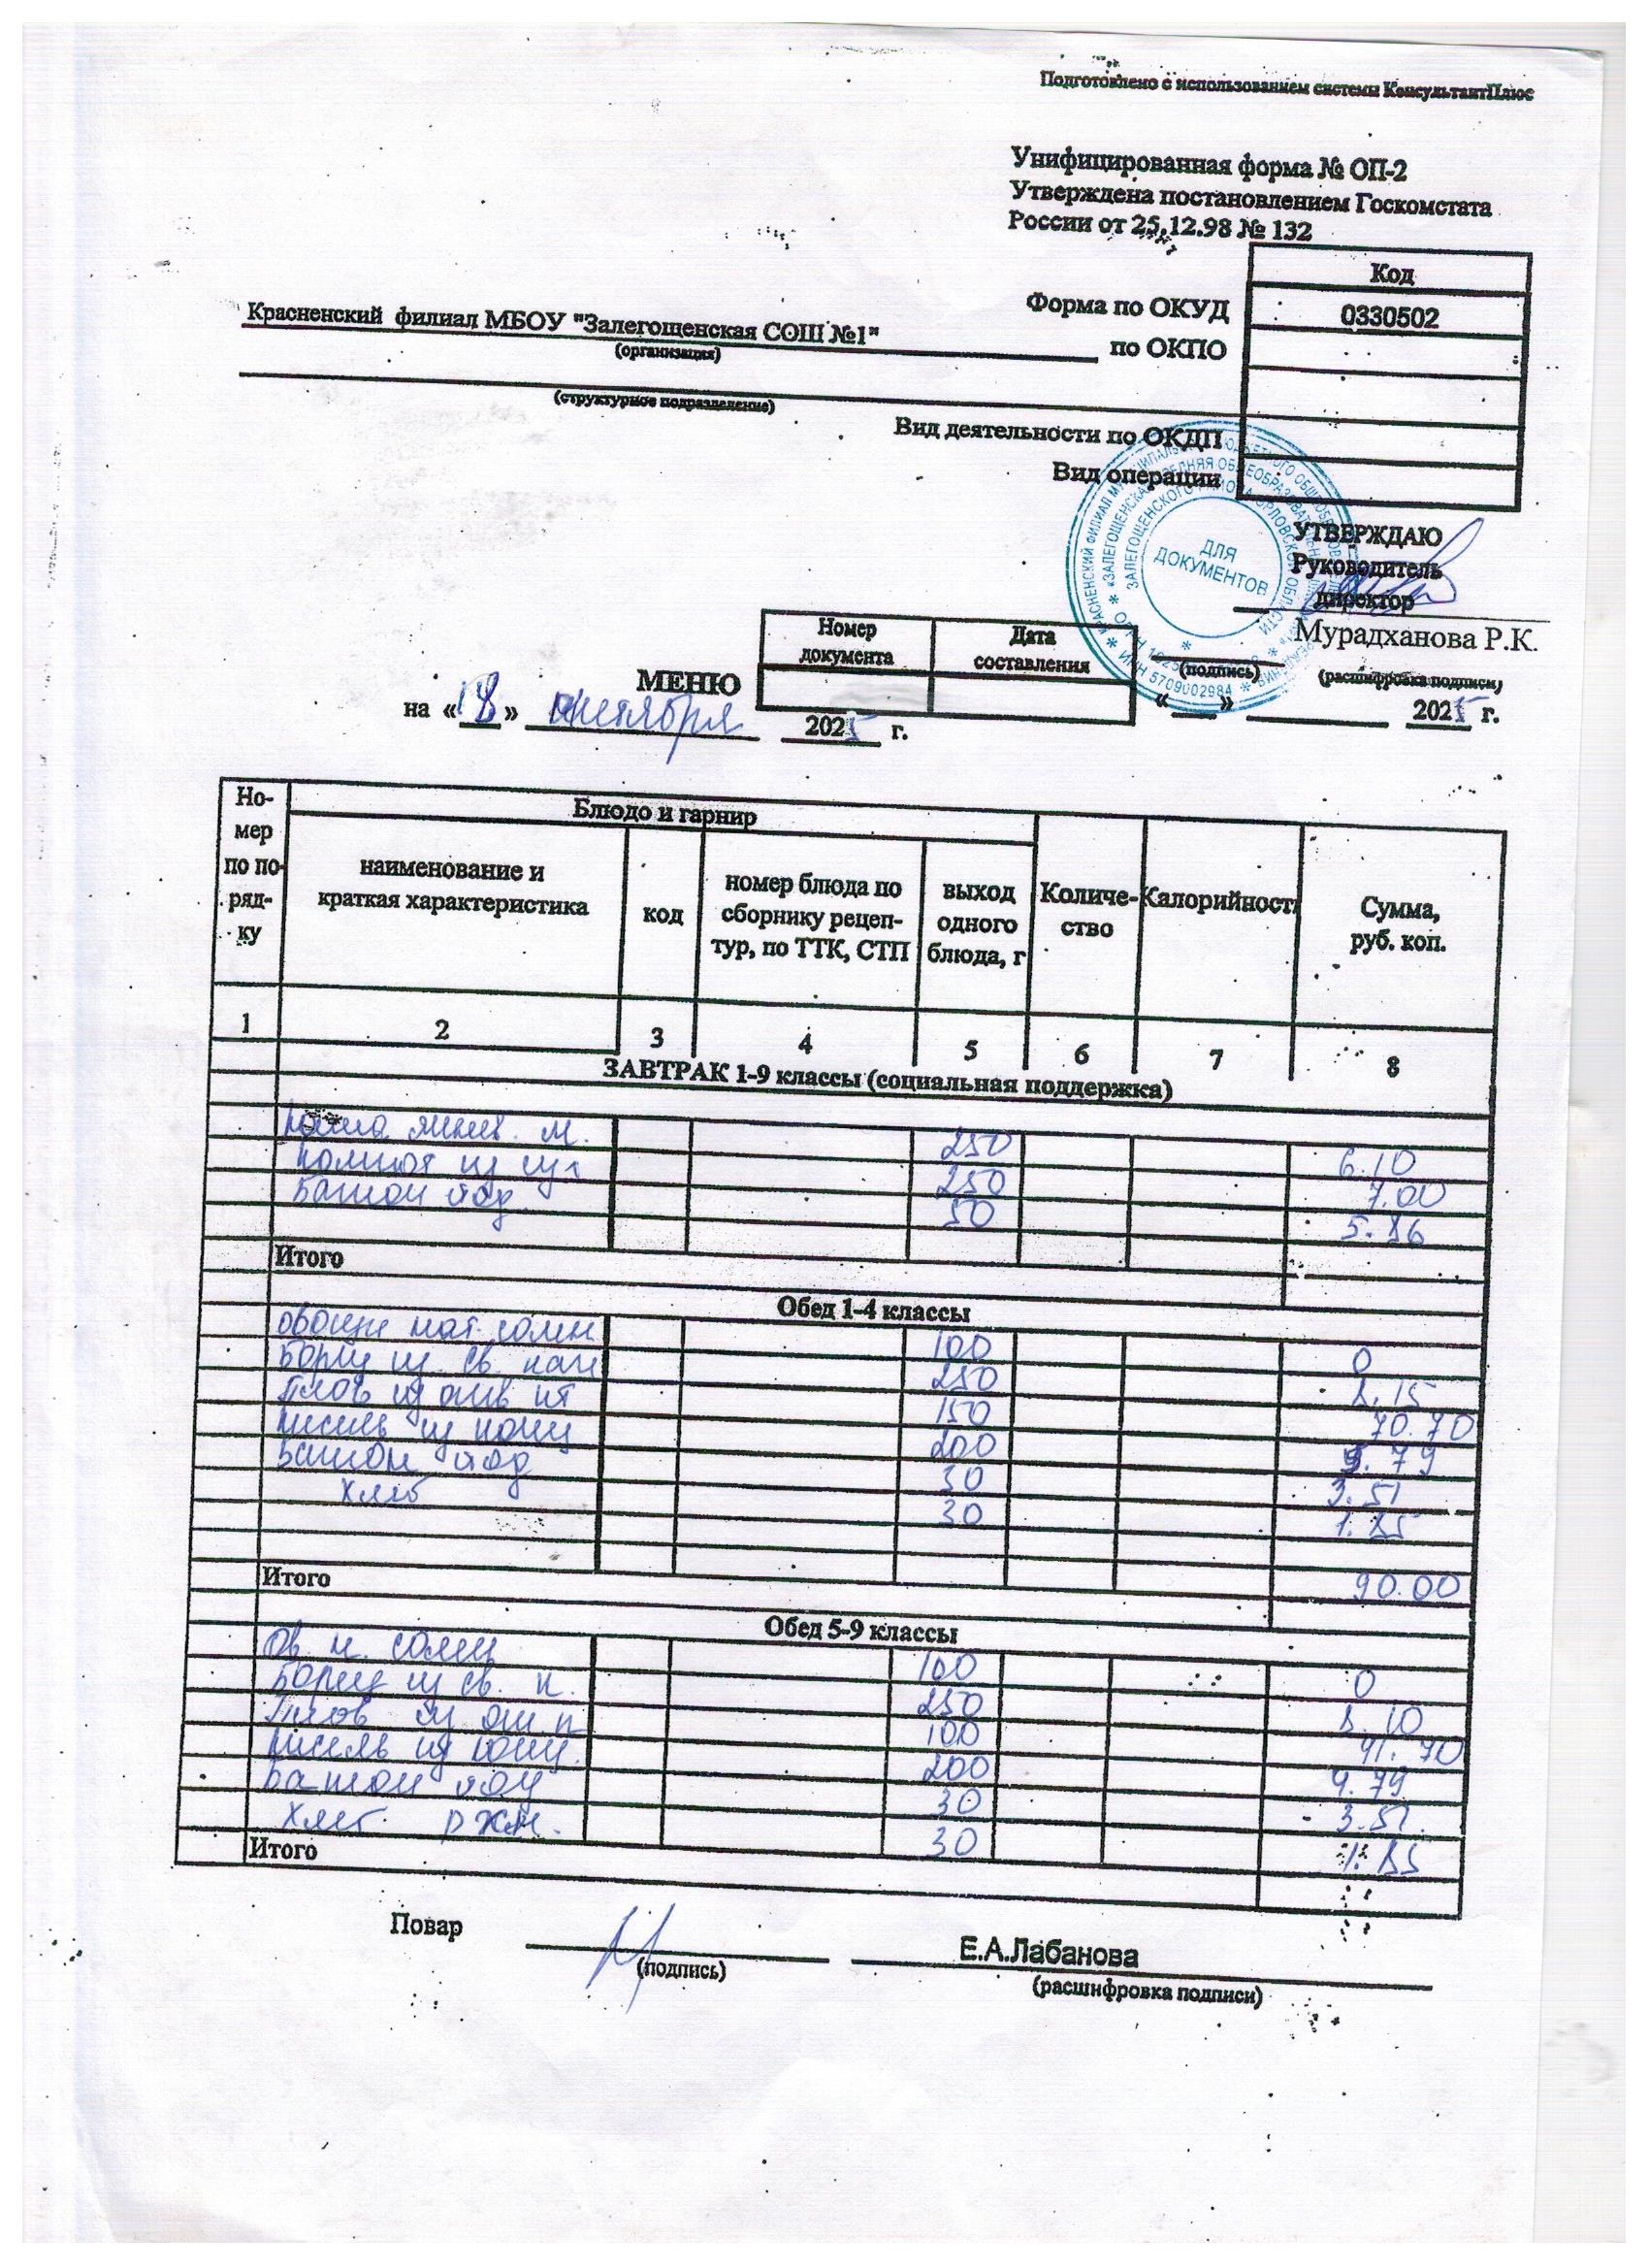 Подготовлено с использованием системы КонсультантПлюс
Унифицированная форма № ОП-2
Утверждена постановлением Госкомстата
России от 25.12.98 № 132
Код
Форма по ОКУД 0330502
Красненский филиал МБОУ "Залегощенская СОШ №1"
по ОКПО
(организация)
(структурное подразделение)
Вид деятельности по ОКДП
Вид операции
ДЛЯ
ДОКУМЕНТОВ
ИНН 5709002984
УТВЕРЖДАЮ
Руководитель
директор
Мурадханова Р.К.
(подпись) (расшифровка подписи)
Номер документа Дата составления
МЕНЮ
на « 18 » октября 2025 г.
« » 2025 г.
Но-мер по по-ряд-ку
Блюдо и гарнир
наименование и краткая характеристика
код
номер блюда по сборнику рецеп-тур, по ТТК, СТП
выход одного блюда, г
Количе-ство
Калорийность
Сумма, руб. коп.
1 2 3 4 5 6 7 8
ЗАВТРАК 1-9 классы (социальная поддержка)
каша м. 250 6.10
компот из сух 250 7.00
Батон йод. 50 5.86
Итого
Обед 1-4 классы
овощи нат. солен 100 0
Борщ из св. кап 250 8.15
Плов из 150 70.70
кисель из конц 200 5.79
Батон йод 30 3.51
Хлеб 30 1.85
Итого 90.00
Обед 5-9 классы
ов. н. солен 100 0
Борщ из св. к. 250 8.10
Плов из 100 41.70
кисель из конц. 200 4.79
Батон йод 30 3.51.
Хлеб ржн. 30 1.85
Итого
Повар
Е.А.Лабанова
(подпись) (расшифровка подписи)